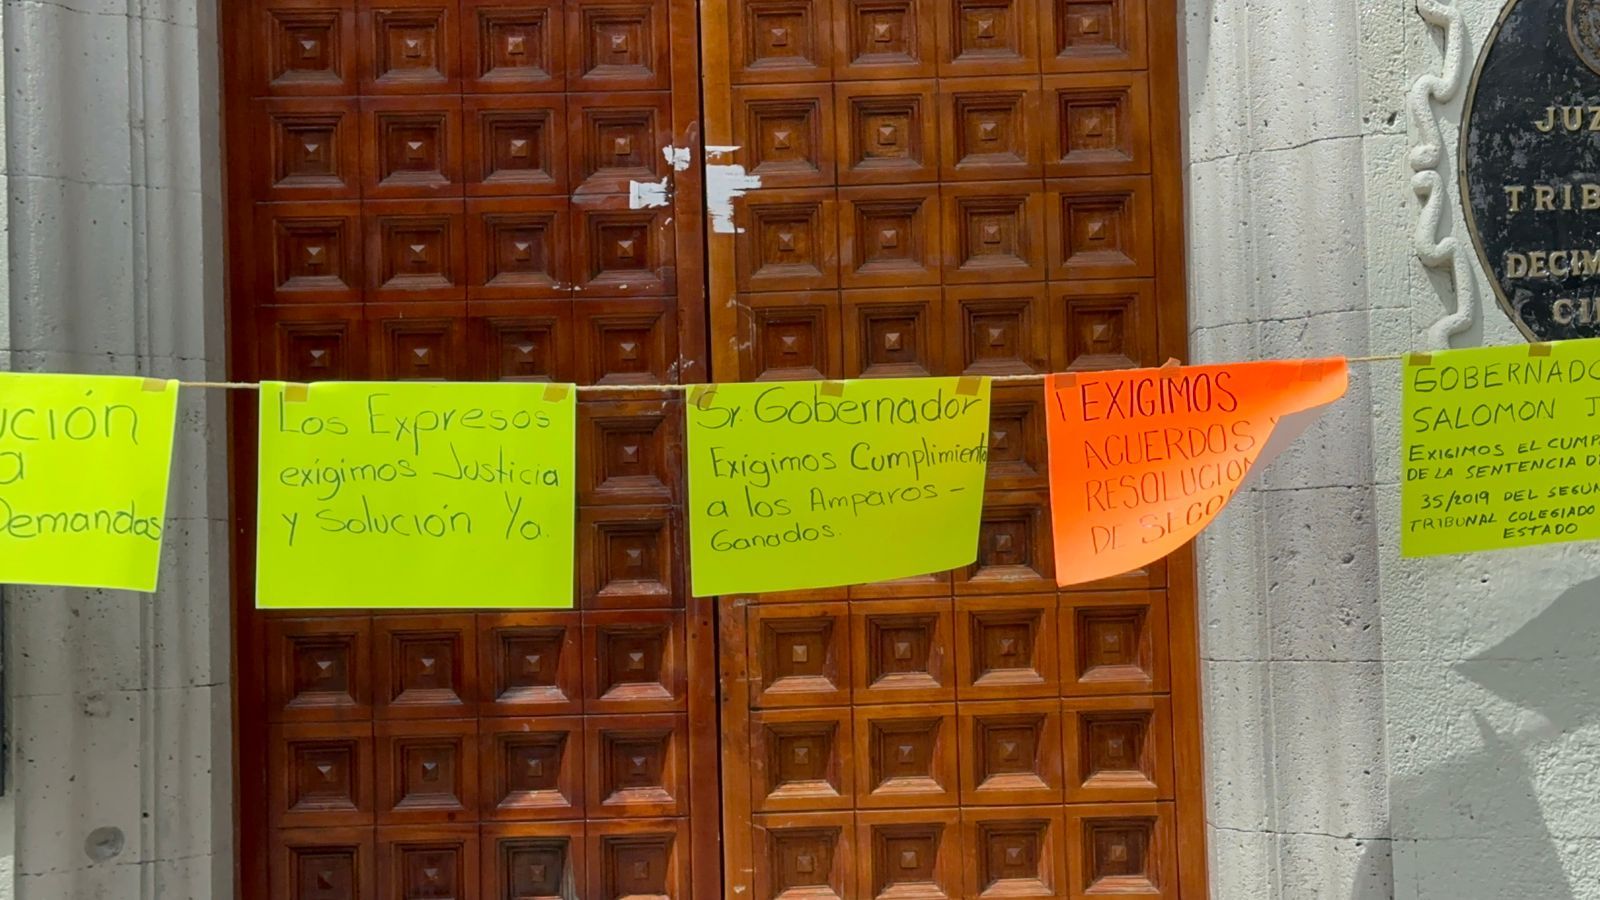 Demandas
Los Expresos
exigimos Justicia
y Solución Ya.
Sr. Gobernador
Exigimos Cumplimiento
a los Amparos -
Ganados.
¡EXIGIMOS
ACUERDOS Y
RESOLUCIO
DE SEGO
GOBERNADO
SALOMON J
EXIGIMOS EL CUMP
DE LA SENTENCIA DE
35/2019 DEL SEGUN
TRIBUNAL COLEGIADO
ESTADO
JUZ
TRIB
DECIM
CI